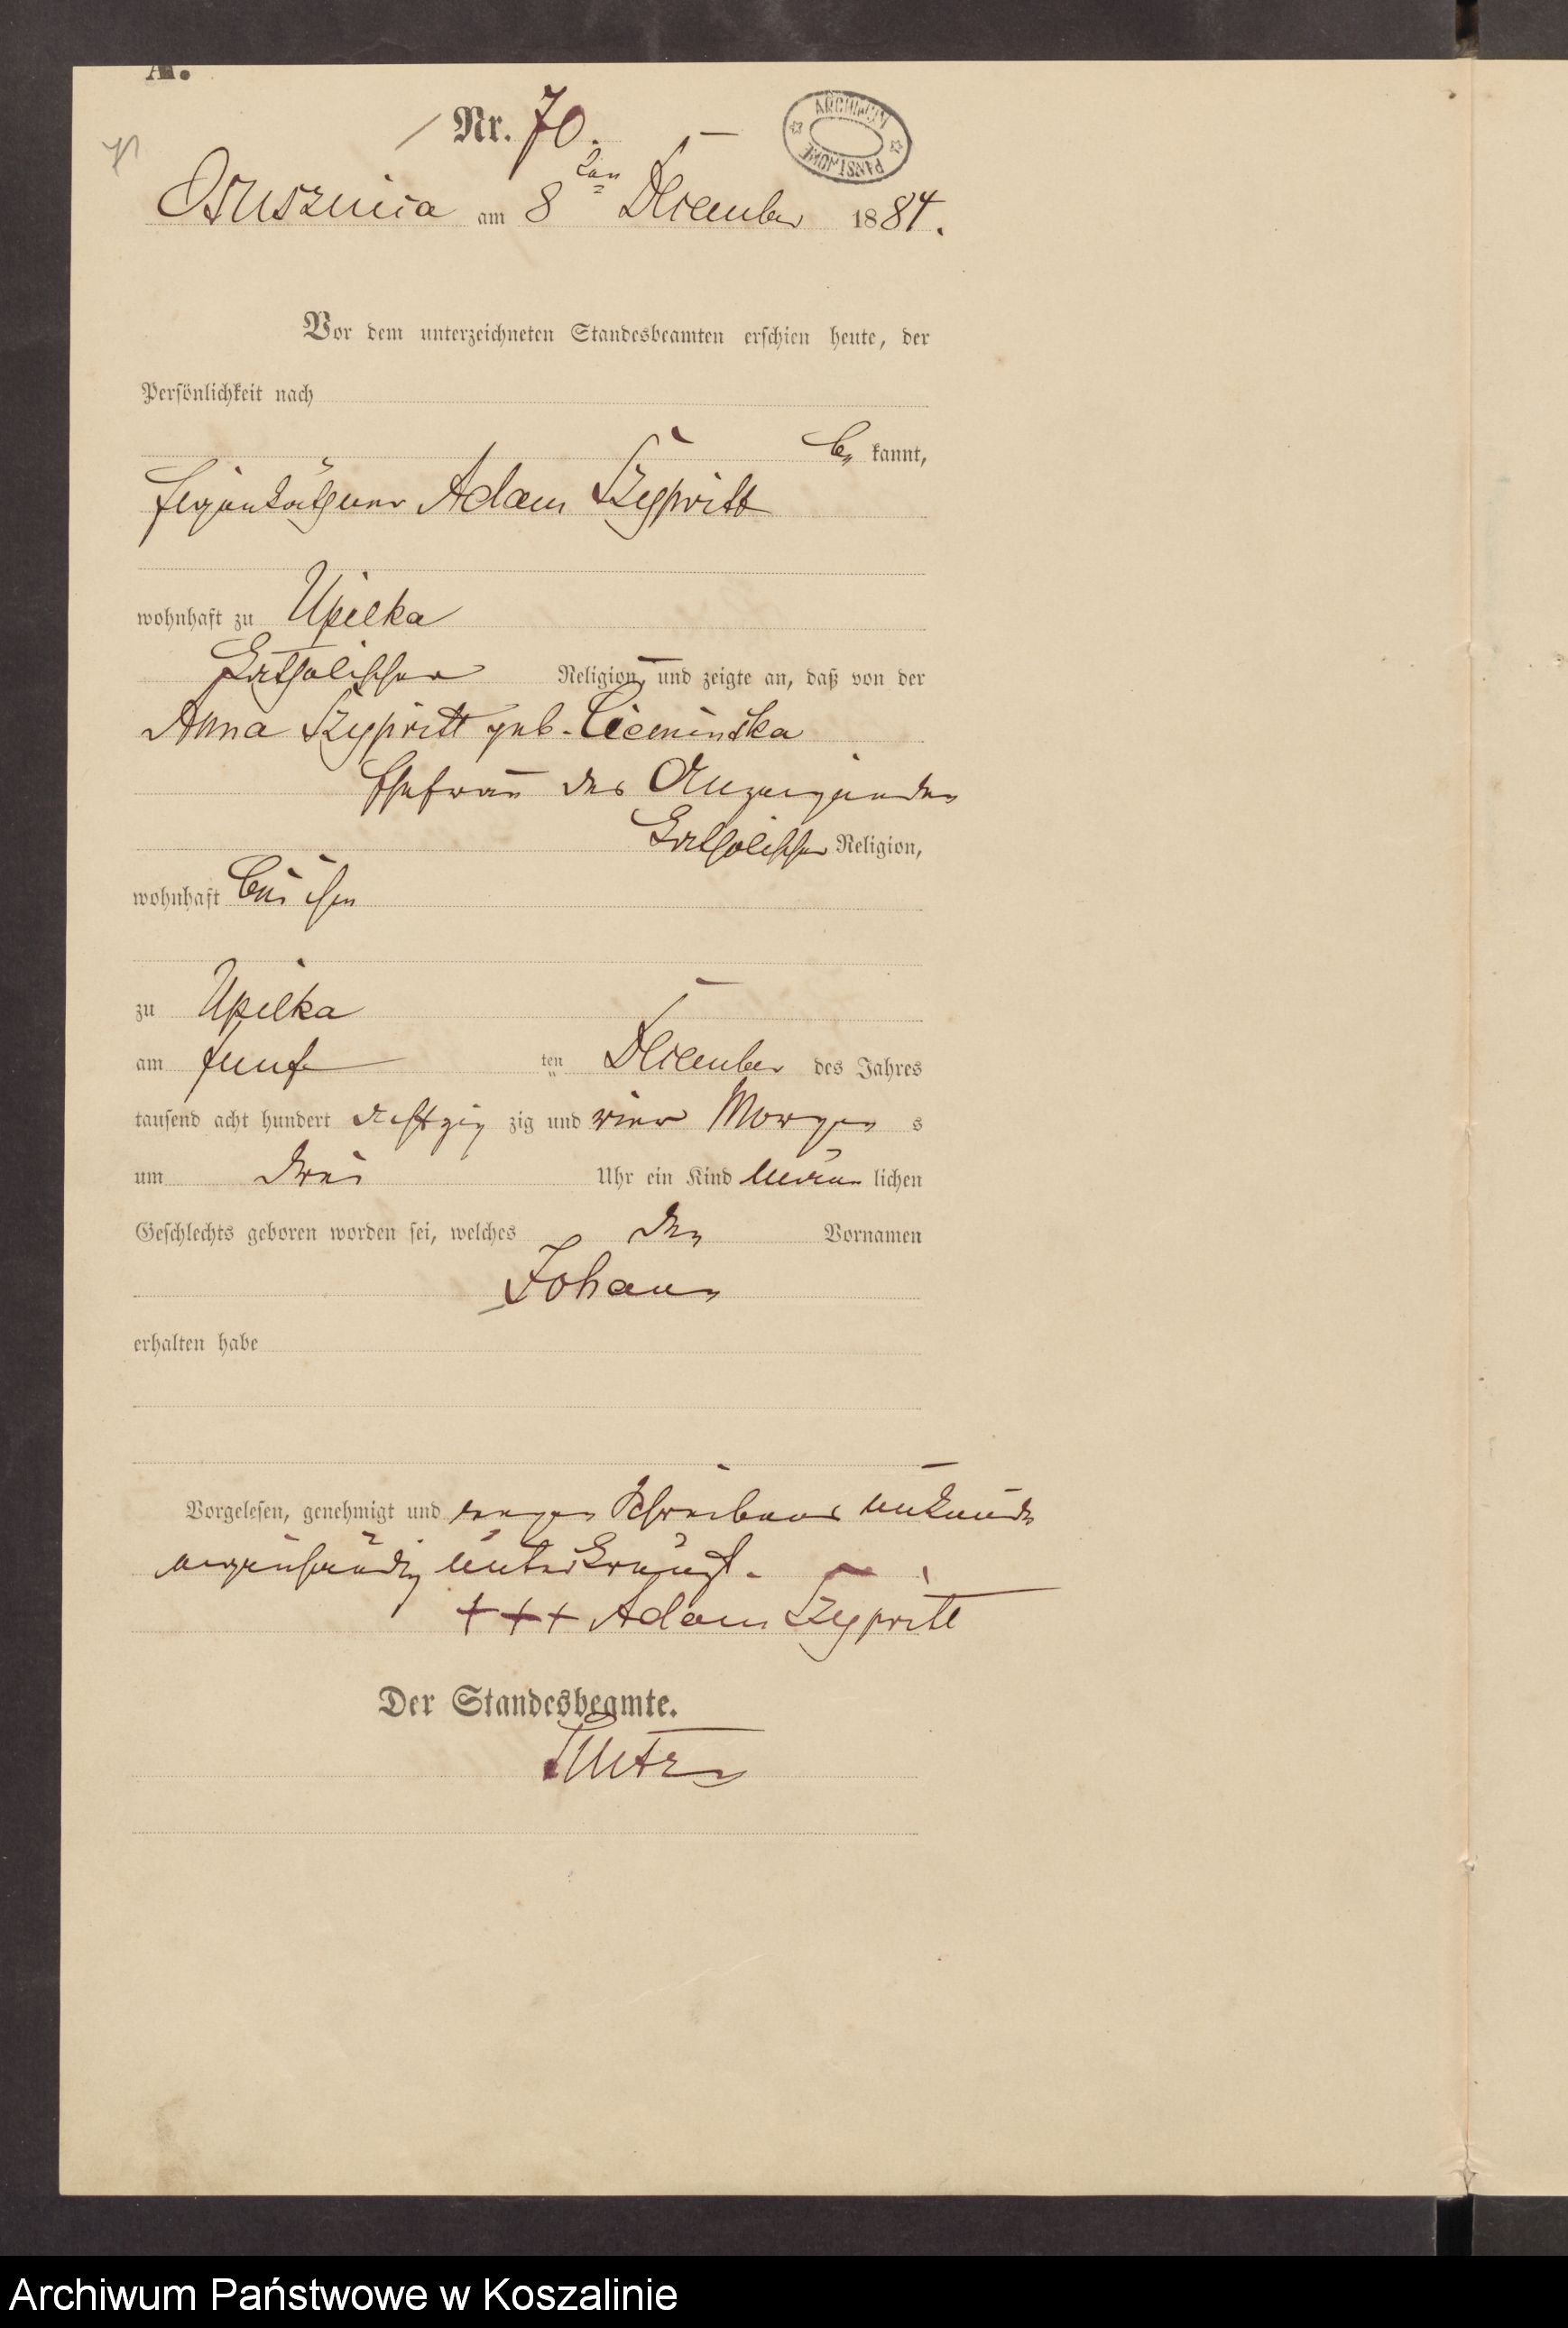 A.
Nr. 70.
ARCHIWUM PAŃSTWOWE
Osusznica am 8ten December 1884.
Vor dem unterzeichneten Standesbeamten erschien heute, der
Persönlichkeit nach
be kannt,
Eigenkäthner Adam Szypritt
wohnhaft zu Upilka
katholischer Religion, und zeigte an, daß von der
Anna Szypritt geb. Cieminska
Ehefrau des Anzeigenden
katholischer Religion,
wohnhaft bei ihm
zu Upilka
am fünf ten December des Jahres
tausend acht hundert achtzig zig und vier Morgen s
um drei Uhr ein Kind männ lichen
Geschlechts geboren worden sei, welches den Vornamen
Johann
erhalten habe
Vorgelesen, genehmigt und wegen Schreibens unkunde
eigenhändig unterkreuzt.
+++ Adam Szypritt
Der Standesbeamte.